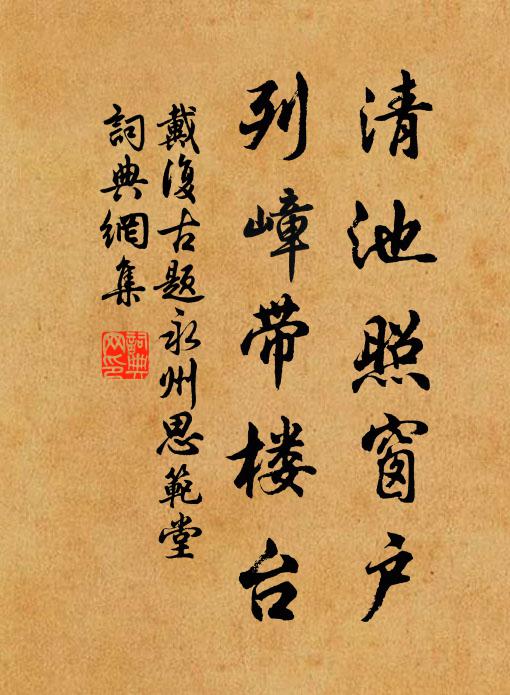 清池照窗户
列嶂带楼台
戴復古題永州思範堂
詞典網集
詞典
网印